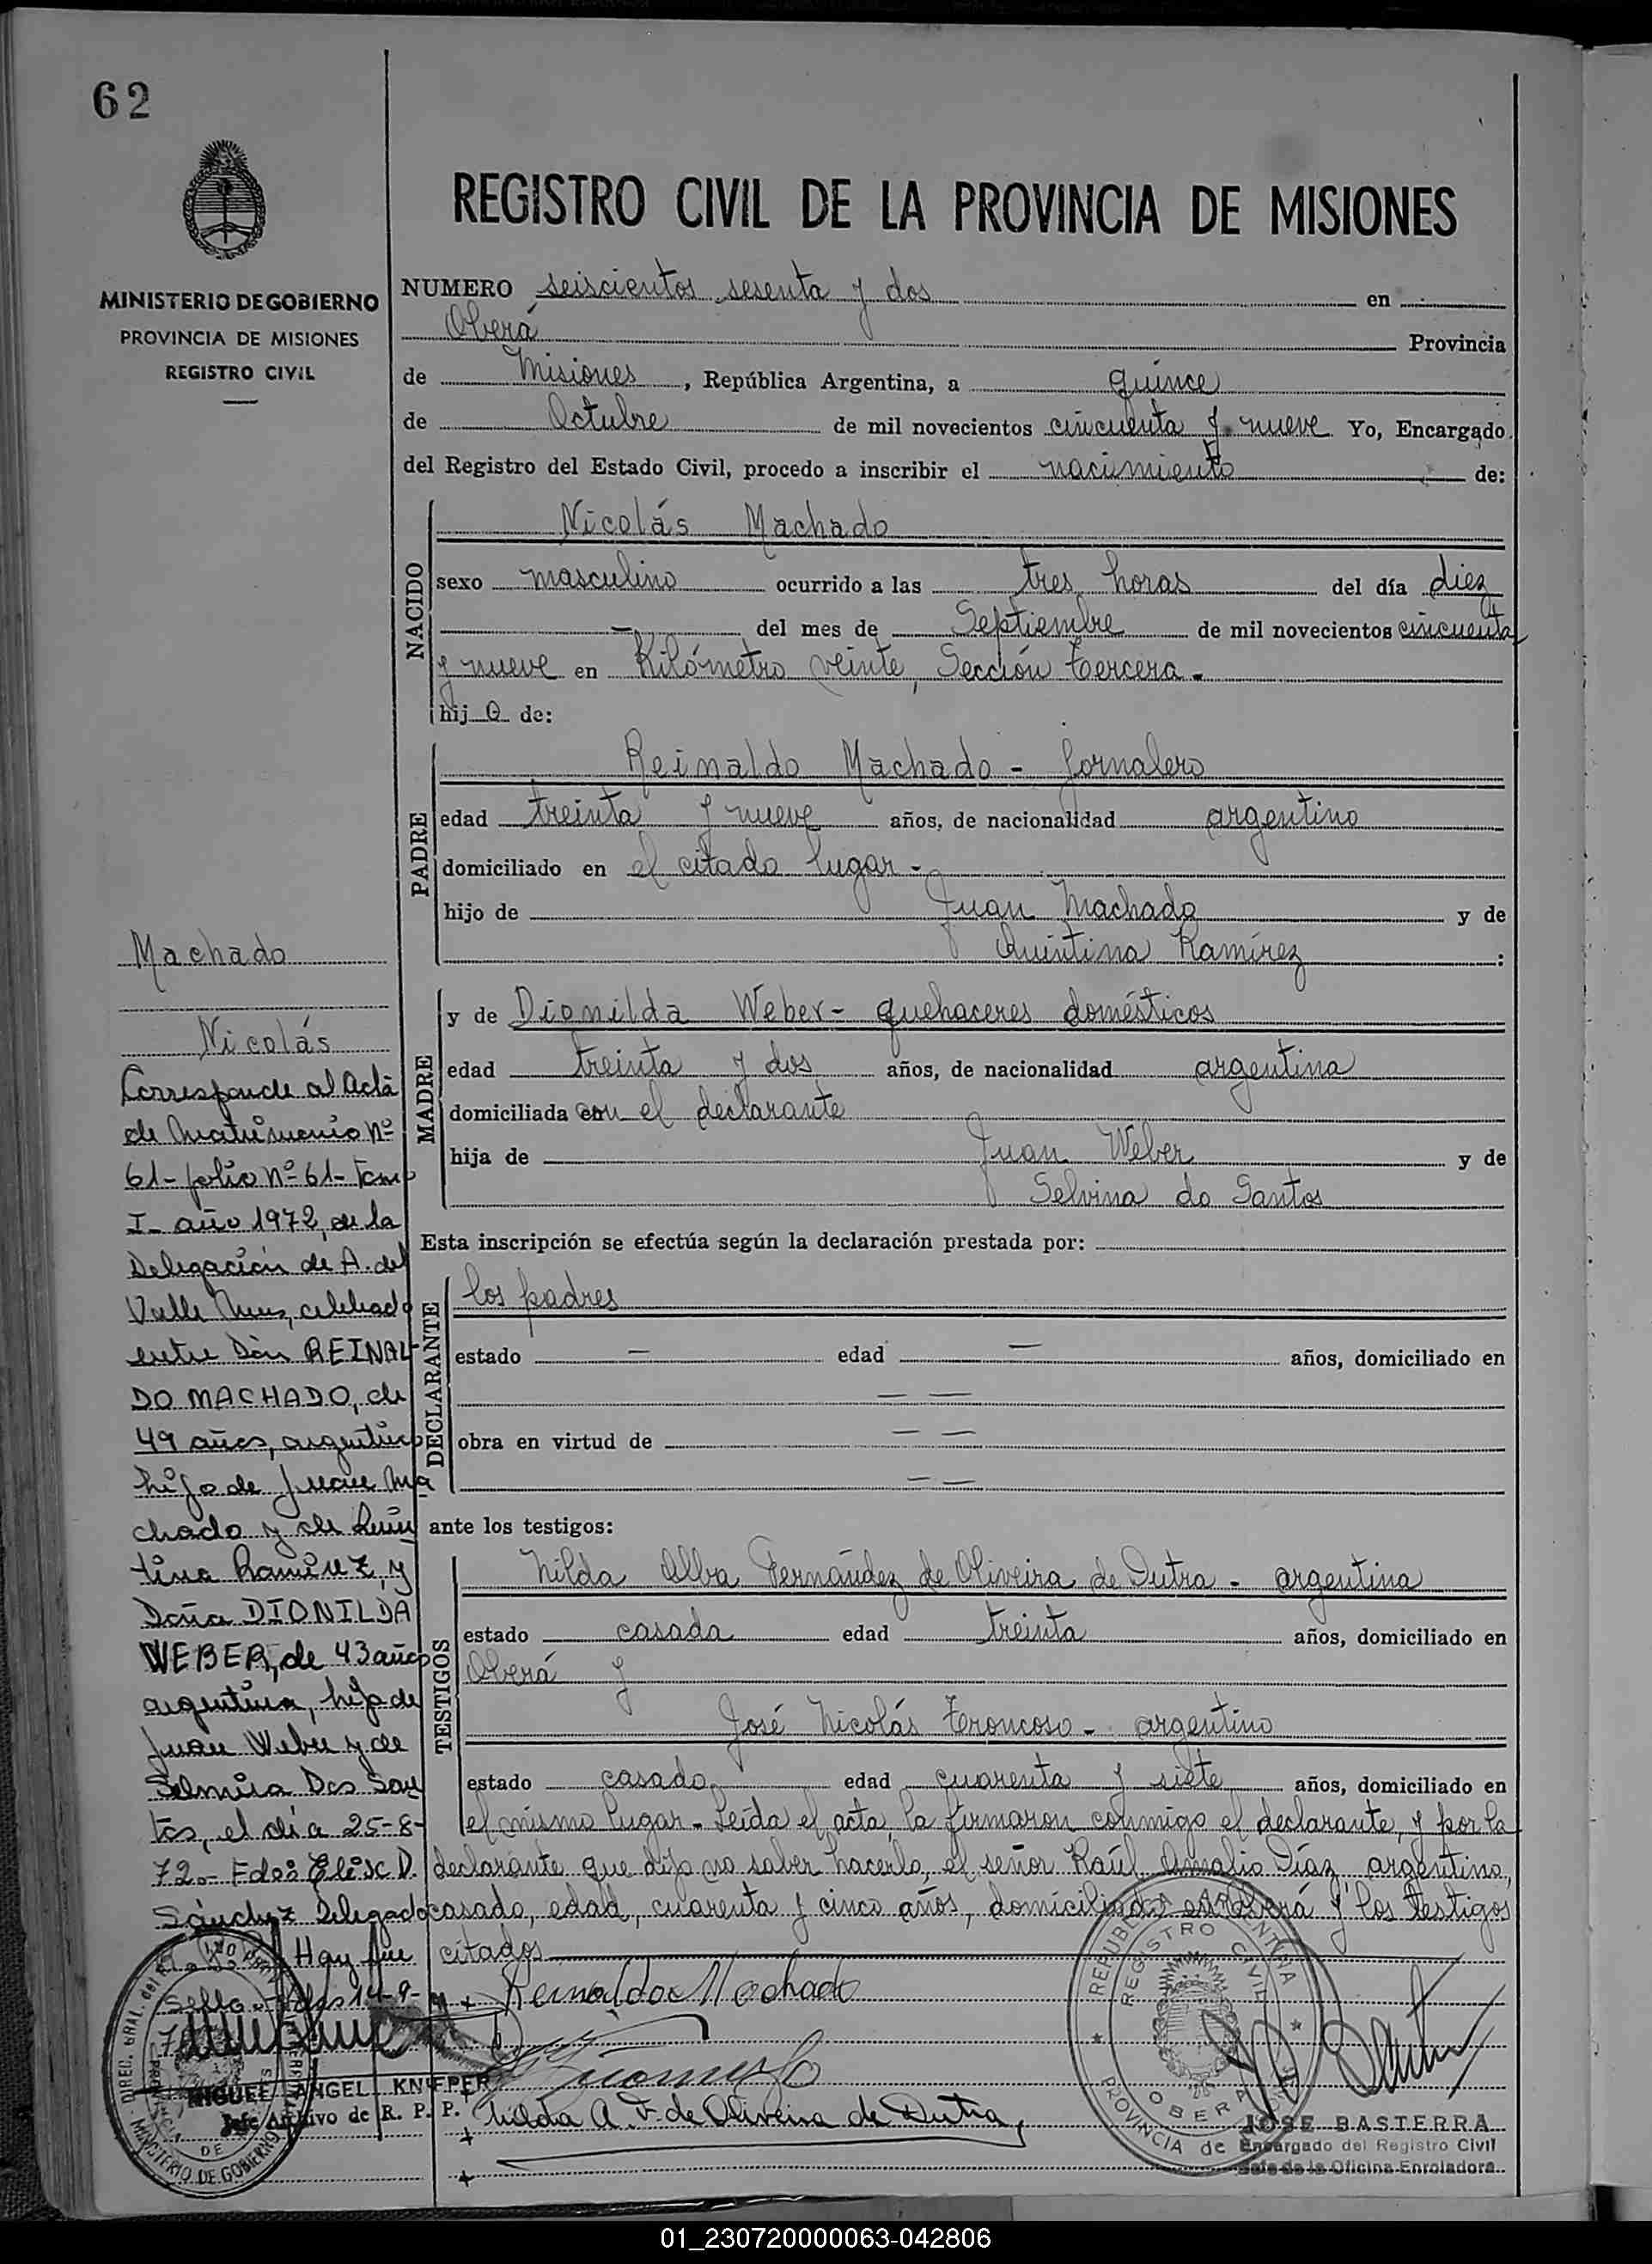 62
REGISTRO CIVIL DE LA PROVINCIA DE MISIONES
MINISTERIO DE GOBIERNO
PROVINCIA DE MISIONES
REGISTRO CIVIL
NUMERO seiscientos sesenta y dos en
Oberá Provincia
de Misiones, República Argentina, a quince
de Octubre de mil novecientos cincuenta y nueve Yo, Encargado
del Registro del Estado Civil, procedo a inscribir el nacimiento de:
NACIDO
Nicolás Machado
sexo masculino ocurrido a las tres horas del día diez
— del mes de Septiembre de mil novecientos cincuenta
y nueve en Kilómetro veinte, Sección tercera.-
hij o de:
PADRE
Reinaldo Machado - Jornalero
edad treinta y nueve años, de nacionalidad argentino
domiciliado en el citado lugar -
hijo de Juan Machado y de
Quintina Ramírez :
MADRE
y de Dionilda Weber - quehaceres domésticos
edad treinta y dos años, de nacionalidad argentina
domiciliada con el declarante
hija de Juan Weber y de
Selvina do Santos
Esta inscripción se efectúa según la declaración prestada por:
DECLARANTE
los padres
estado — edad — años, domiciliado en
— —
obra en virtud de — —
— —
ante los testigos:
TESTIGOS
Nilda Alba Fernández de Oliveira de Dutra - argentina
estado casada edad treinta años, domiciliado en
Oberá y
José Nicolás Troncoso - argentino
estado casado edad cuarenta y siete años, domiciliado en
el mismo lugar - Leída el acta, la firmaron conmigo el declarante, y por la
declarante que dijo no saber hacerlo, el señor Raúl Amalio Díaz, argentino,
casado, edad, cuarenta y cinco años, domiciliado en Oberá y los testigos
citados
Reinaldo Machado
Nilda A. F. de Oliveira de Dutra
JOSE BASTERRA
Encargado del Registro Civil
Jefe de la Oficina Enroladora
REPUBLICA ARGENTINA
REGISTRO CIVIL
OBERA
PROVINCIA de
Machado
Nicolás
Corresponde al Acta
de Matrimonio Nº
61- folio Nº 61- Tomo
I- año 1972, de la
Delegación de A. del
Valle Mnes, celebrado
entre Don REINAL
DO MACHADO, de
49 años, argentino
hijo de Juan Ma
chado y de Quin
tina Ramirez, y
Doña DIONILDA
WEBER, de 43 años
argentina, hija de
Juan Weber y de
Selmira Dos San
tos, el día 25-8-
72.- Fdo: D.
Sánchez Delegado
Hay un
sello. 14-9-
MIGUEL ANGEL KNIEPER
Jefe Archivo de R. P. P.
DIREC. GRAL. del
MINISTERIO DE GOBIERNO
01_230720000063-042806